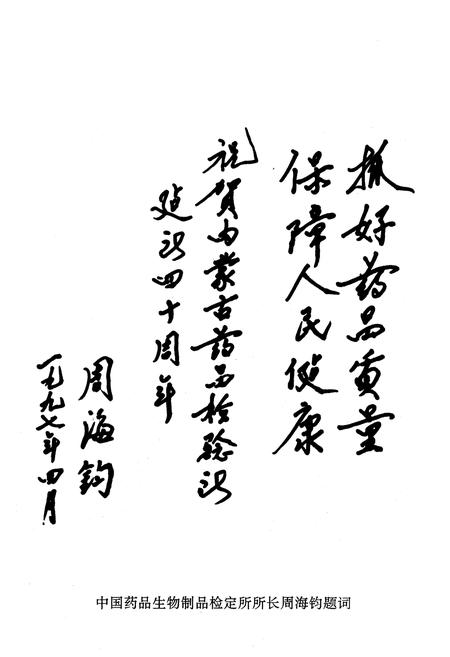 抓好药品质量
保障人民健康
祝贺内蒙古药品检验所
建所四十周年
周海钧
一九九七年四月
中国药品生物制品检定所所长周海钧题词